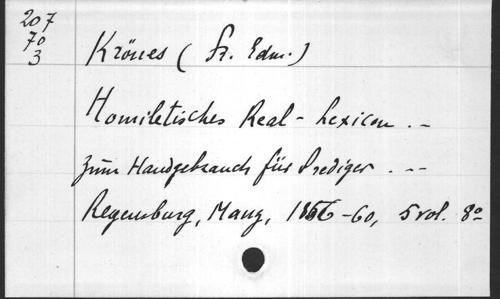 207
70
3
Krönes (Fr. Edm.)
Homiletisches Real-Lexicon . –
zum Handgebrauch für Prediger . – –
Regensburg, Manz, 1856–60, 5 vol. 8º